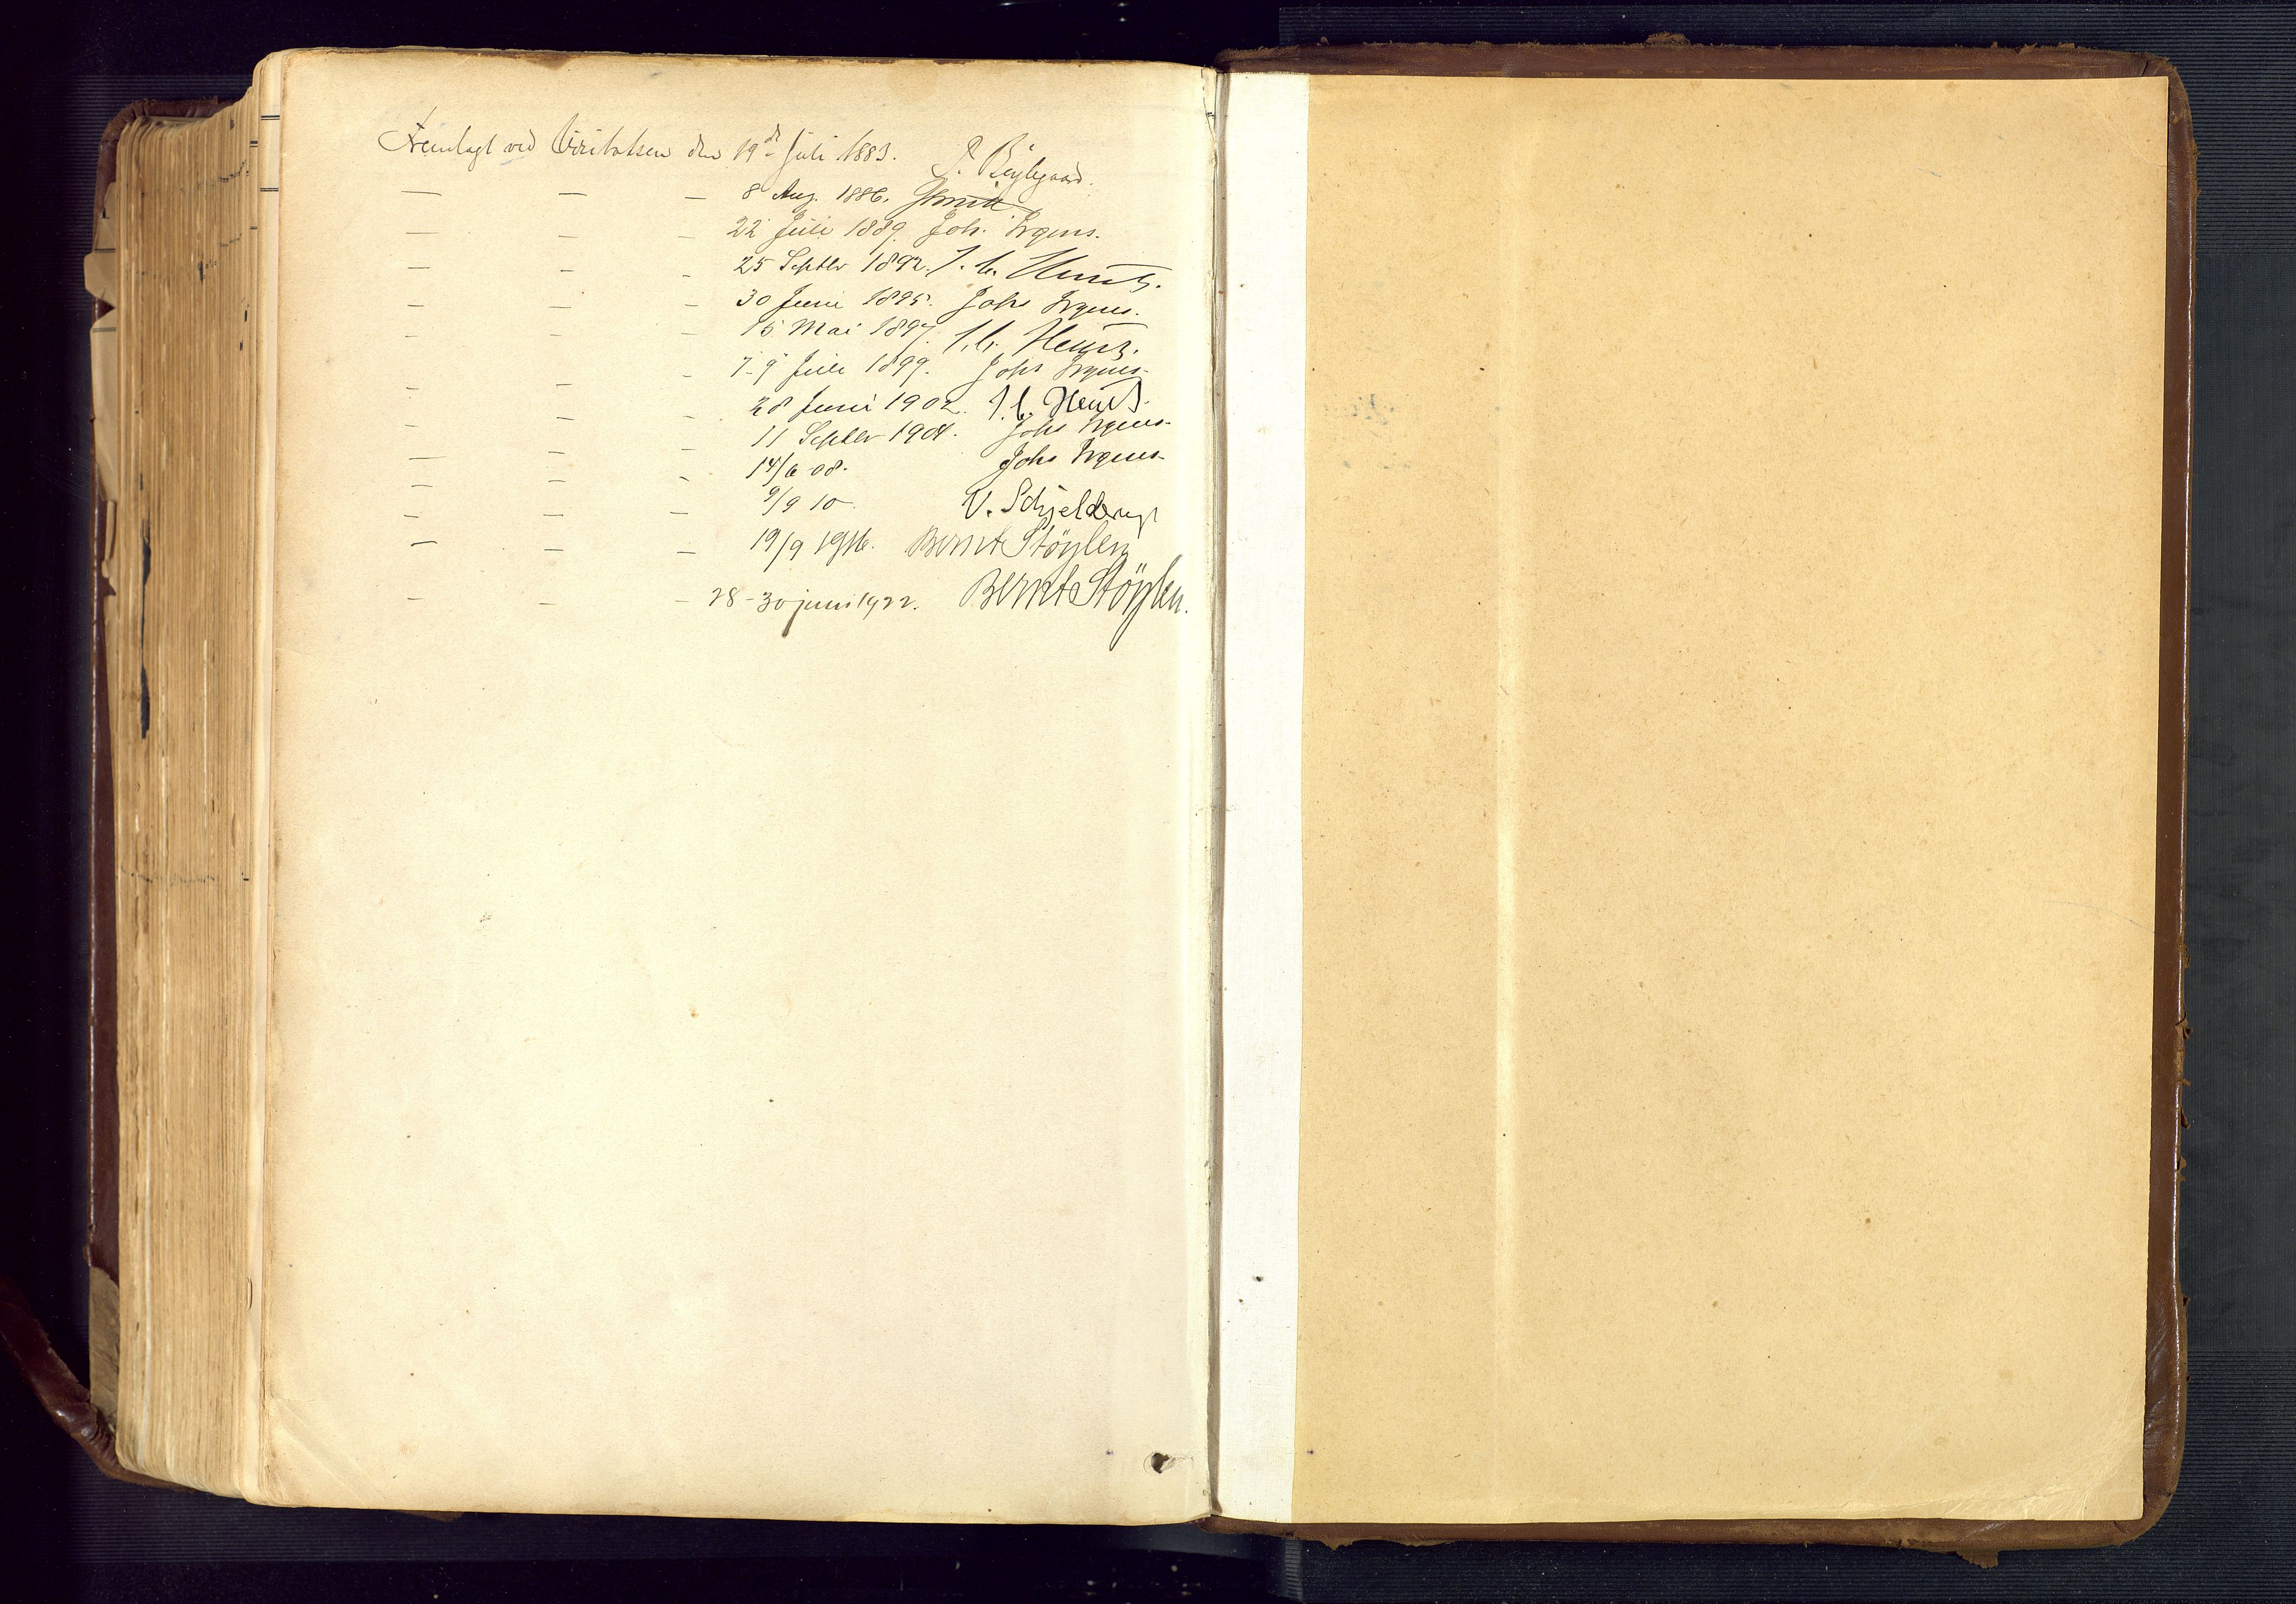 Fremlagt ved Visitatsen den 19de Juli 1883. 
— — — 8 Aug. 1886.
— — — 22 Juli 1889. Joh. Irgens.
— — — 25 Septbr 1892. J. C. Heuch.
— — — 30 Juni 1895. Johs Irgens.
— — — 15 Mai 1897. J. C. Heuch.
— — — 7-9 Juli 1899. Johs Irgens.
— — — 28 Juni 1902. J. C. Heuch.
— — — 11 Septbr 1904. Johs Irgens.
— — — 14/6 08. Johs Irgens.
— — — 9/9 10. V. Schjelderup
— — — 19/9 1916. Bernt Støylen
— — — 28-30 juni 1922. Bernt Støylen.